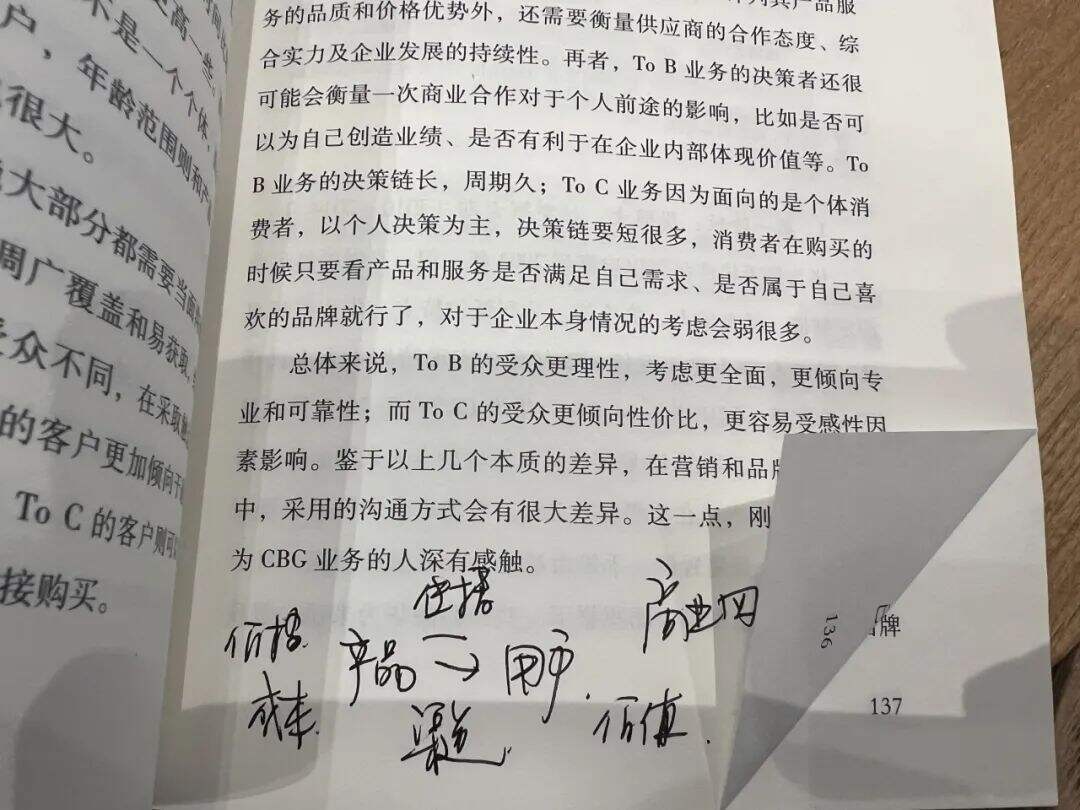 高一些。
不是一个个体,
户,年龄范围则和产
很大。
大部分都需要当面
周广覆盖和易获取,
众不同,在采取
的客户更加倾向于
To C 的客户则可
接购买。
务的品质和价格优势外,还需要衡量供应商的合作态度、综
合实力及企业发展的持续性。再者,To B 业务的决策者还很
可能会衡量一次商业合作对于个人前途的影响,比如是否可
以为自己创造业绩、是否有利于在企业内部体现价值等。To
B 业务的决策链长,周期久;To C 业务因为面向的是个体消
费者,以个人决策为主,决策链要短很多,消费者在购买的
时候只要看产品和服务是否满足自己需求、是否属于自己喜
欢的品牌就行了,对于企业本身情况的考虑会弱很多。
总体来说,To B 的受众更理性,考虑更全面,更倾向专
业和可靠性;而 To C 的受众更倾向性价比,更容易受感性因
素影响。鉴于以上几个本质的差异,在营销和品牌
中,采用的沟通方式会有很大差异。这一点,刚
为 CBG 业务的人深有感触。
传播 商业网
价格 产品 → 用户
成本 渠道 价值
136
牌
137